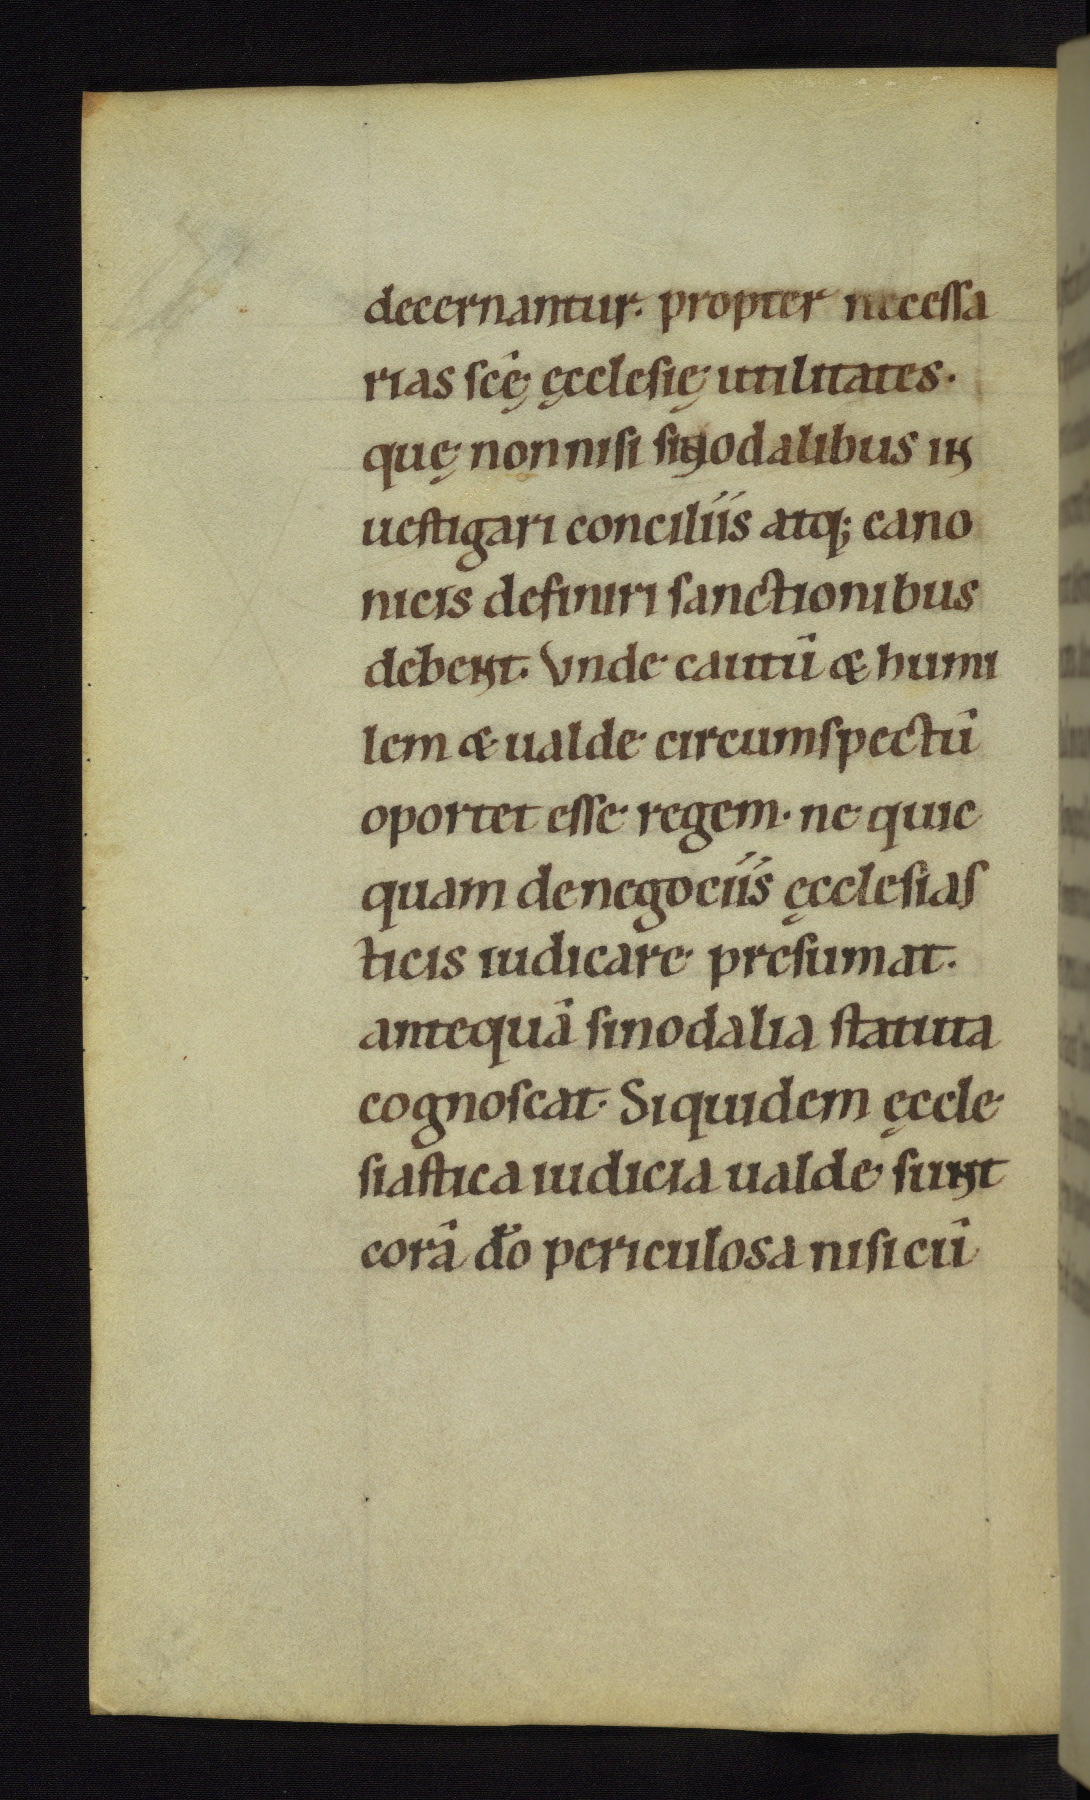 decernantur. propter necessa
rias scē ęcclesię utilitates.
quę non nisi sinodalibus in
uestigari conciliis atq; cano
nicis definiri sanctionibus
debent. Vnde cautū & humi
lem & ualde circumspectū
oportet esse regem. ne quic
quam de negociis ęcclesias
ticis iudicare presumat.
antequā sinodalia statuta
cognoscat. Siquidem ęccle
siastica iudicia ualde sunt
corā dō periculosa nisi cū